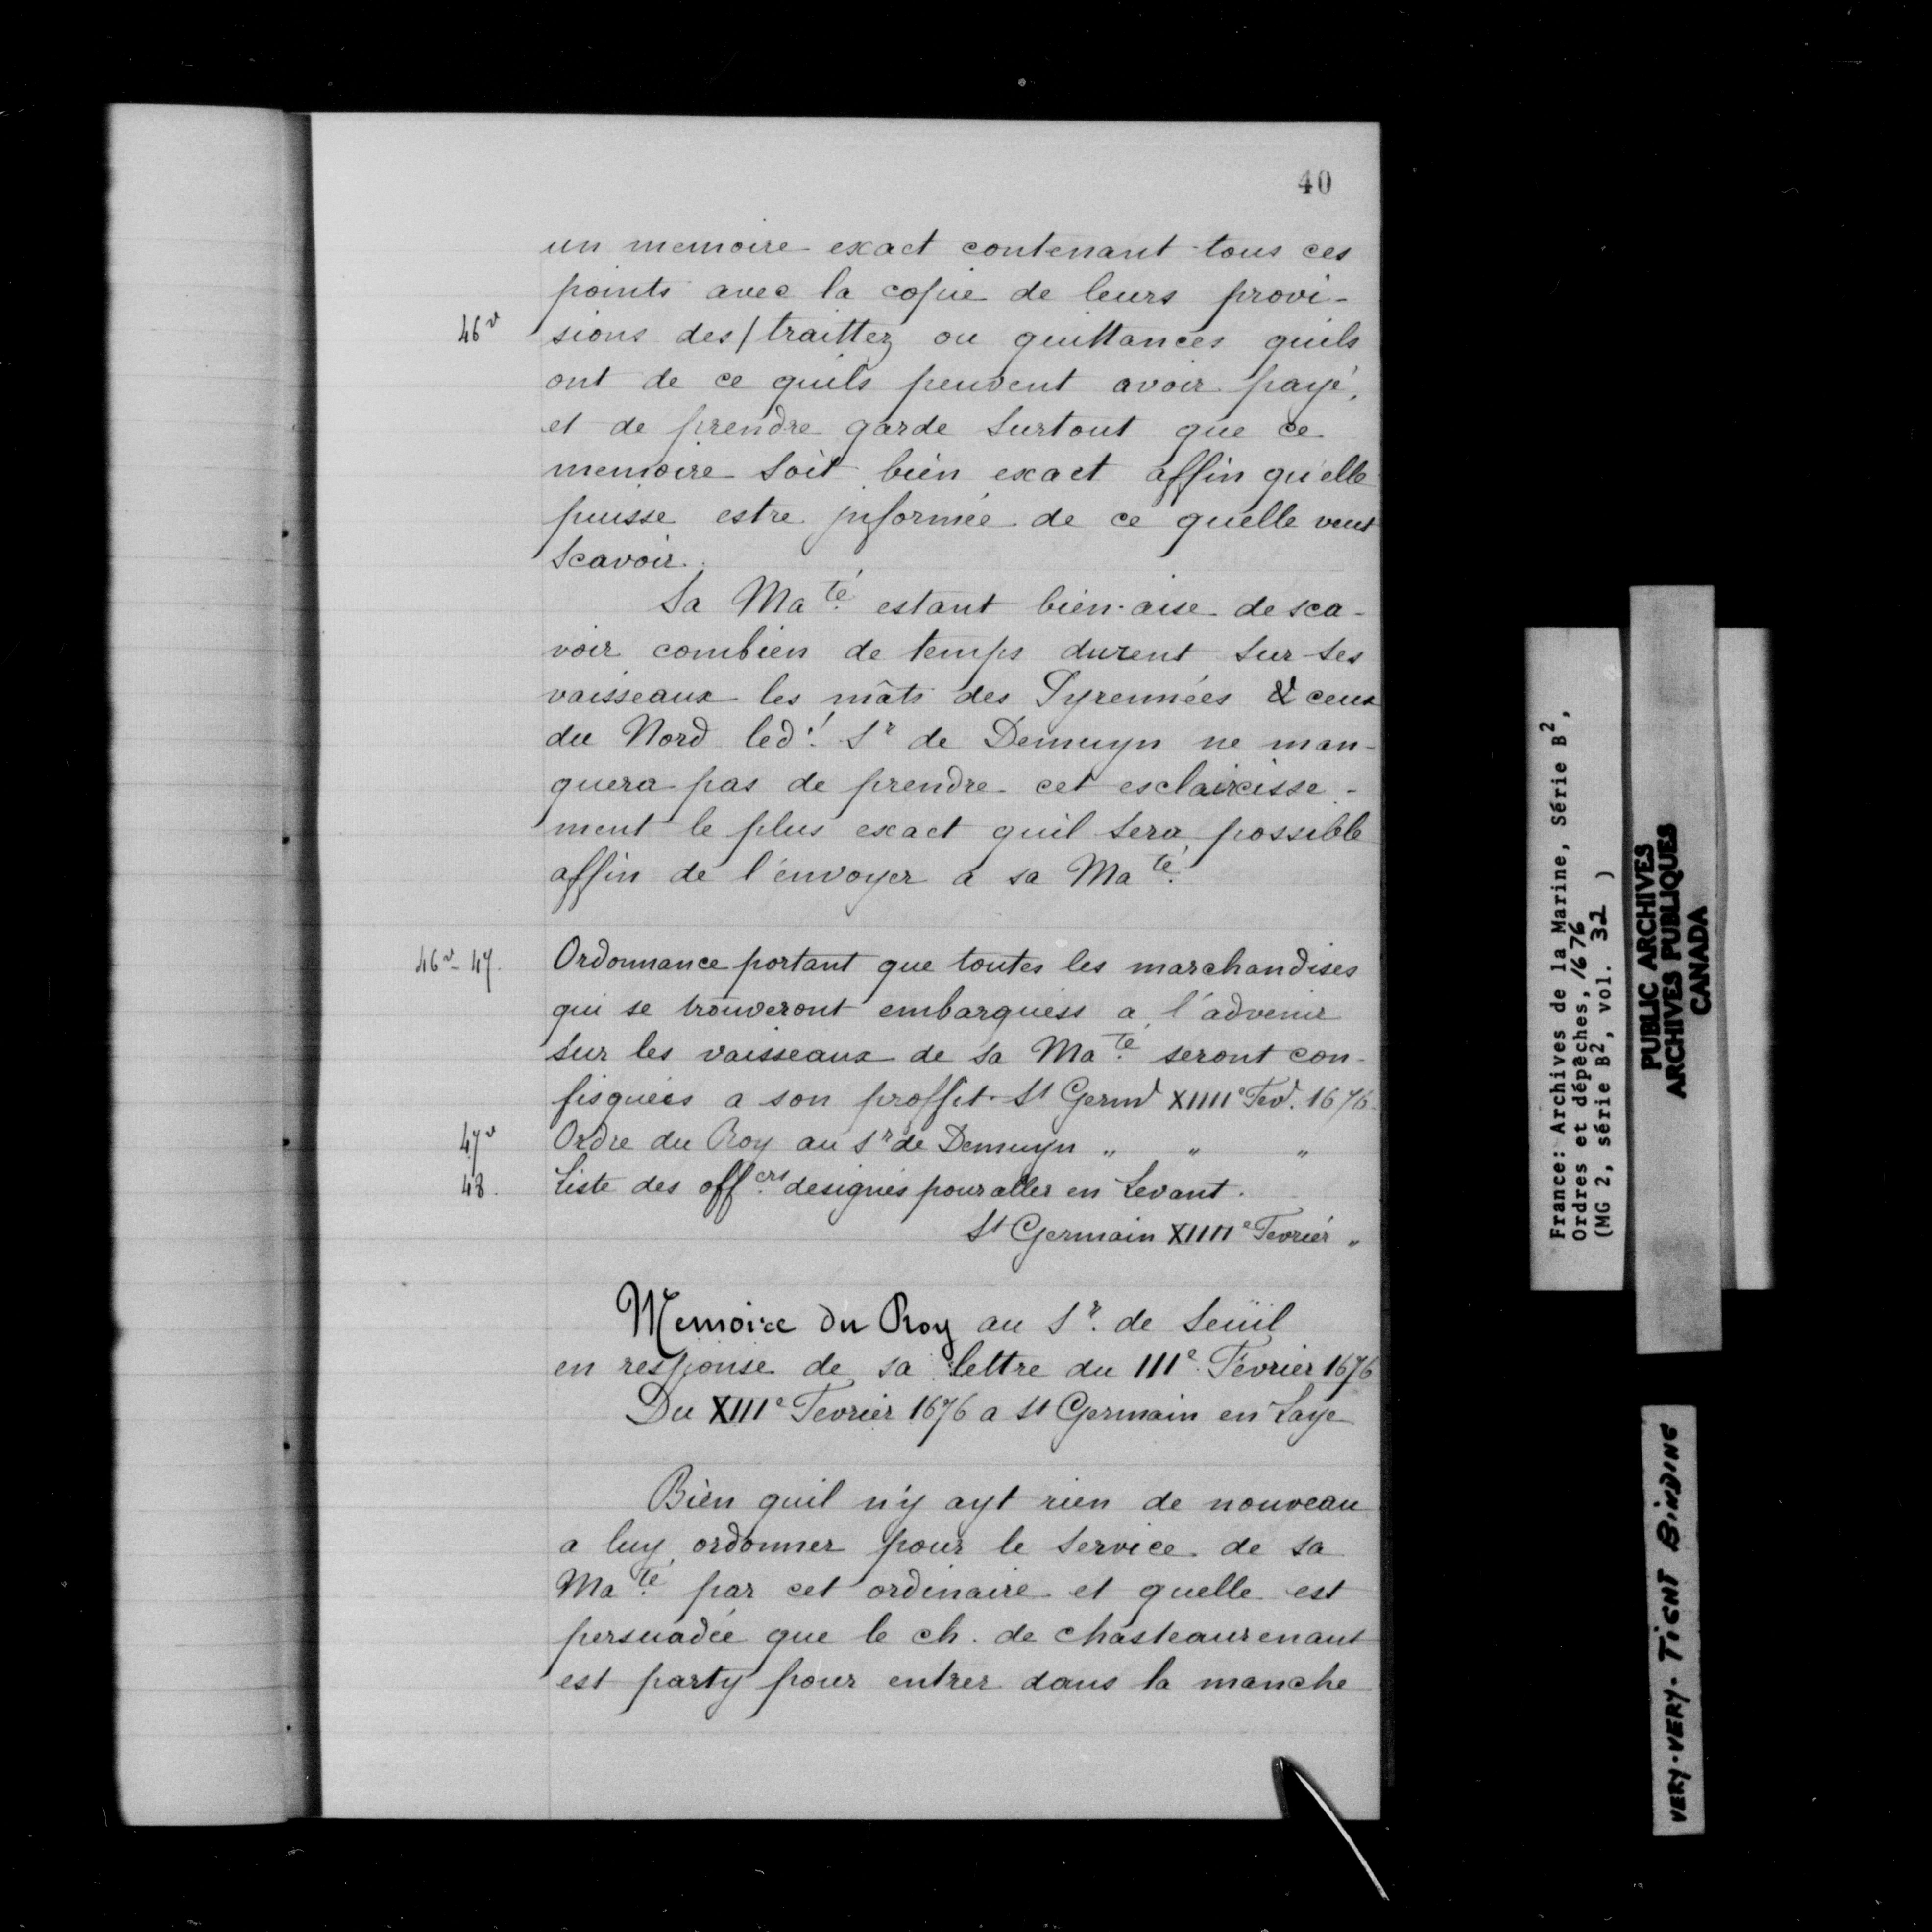 40
un memoire exact contenant tous ces
points avec la copie de leurs provi-
46v sions des/traittez ou quittances quils
ont de ce quils peuvent avoir payé,
et de prendre garde surtout que ce
memoire soit bien exact affin qu'elle
puisse estre informée de ce quelle veut
scavoir.
Sa Maté estant bien aise de sca-
voir combien de temps durent sur ses
vaisseaux les mâts des Pyrennées & ceux
du Nord led.t Sr de Demuyn ne man-
quera pas de prendre cet esclaircisse-
ment le plus exact quil sera possible
affin de l'envoyer a sa Maté.
46v-47. Ordonnance portant que toutes les marchandises
qui se trouveront embarquéss a l'advenir
sur les vaisseaux de sa Maté seront con-
fisquées a son proffit. St Germd XIIIIe Fev. 1676
47v Ordre du Roy au Sr de Demuyn " " "
48. Liste des offers designés pour aller en Levant.
St Germain XIIIIe Fevrier "
Memoire du Roy au Sr. de Seüil
en response de sa lettre du IIIe Février 1676
Du XIIIe Fevrier 1676 a St Germain en Laye
Bien quil n'y ayt rien de nouveau
a luy ordonner pour le service de sa
Maté par cet ordinaire et quelle est
persuadée que le ch. de chasteaurenaut
est party pour entrer dans la manche
France: Archives de la Marine, Série B2,
Ordres et dépêches, 1676
(MG 2, série B2, vol. 32 )
PUBLIC ARCHIVES
ARCHIVES PUBLIQUES
CANADA
VERY-VERY-TIGHT BINDING